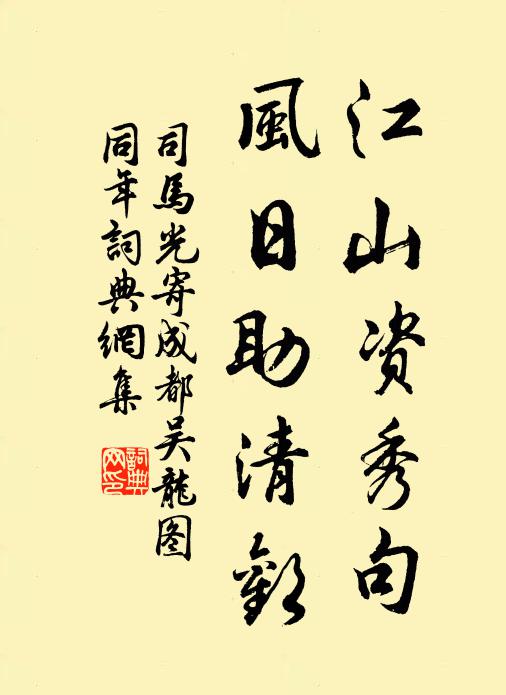 江山资秀句
風日助清歡
司馬光寄成都吴龍图
同年詞典網集
詞典
网印